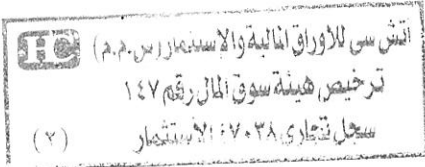 اتش سى للأوراق المالية والاستثمار (س.م.م)
ترخيص هيئة سوق المال رقم ١٤٧
سجل تجارى ٤٧٠٣٨ الأستثمار
(٢)